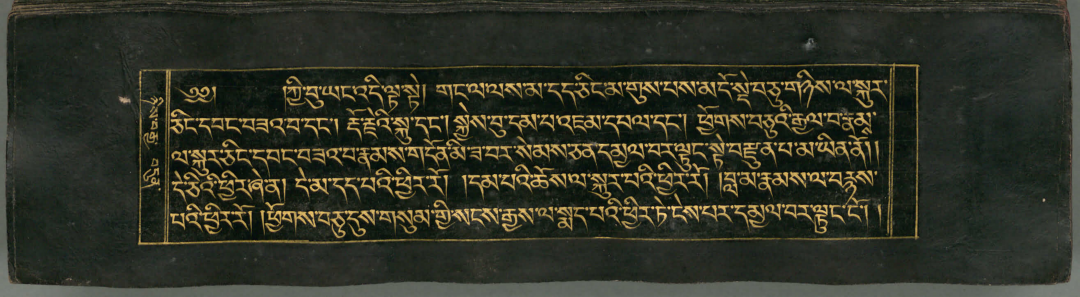 ༄༅། ཀྱི་བུ་ཡང་འདི་ལྟ་སྟེ། གང་ལ་ལས་མ་དད་ཅིང་མ་གུས་པས་མདོ་སྡེ་བཅུ་གཉིས་ལ་སྐུར་
ཅིང་དབང་བཟའ་བ་དང་། རྡོ་རྗེའི་སྐུ་དང་། སྐྱེས་བུ་དམ་པ་འཇམ་དཔལ་དང་། ཕྱོགས་བཅུའི་རྒྱལ་བ་རྣམ་
ལ་སྐུར་ཅིང་དབང་བཟའ་བ་རྣམས་ག་དོན་མི་ཟ་བར་སེམས་ཅན་དམྱལ་བར་ལྟུང་སྟེ་བརྫུན་པ་མ་ཡིན་ནོ། །
དེ་ཅིའི་ཕྱིར་ཞེ་ན། དེ་མ་དད་པའི་ཕྱིར་རོ། །དམ་པའི་ཆོས་ལ་སྐུར་པའི་ཕྱིར་རོ། །བླ་མ་རྣམས་ལ་བརྙས་
པའི་ཕྱིར་རོ། །ཕྱོགས་བཅུ་དུས་གསུམ་གྱི་སངས་རྒྱས་ལ་སྨད་པའི་ཕྱིར་ཏེ་ངེས་པར་དམྱལ་བར་ལྟུང་ངོ། །